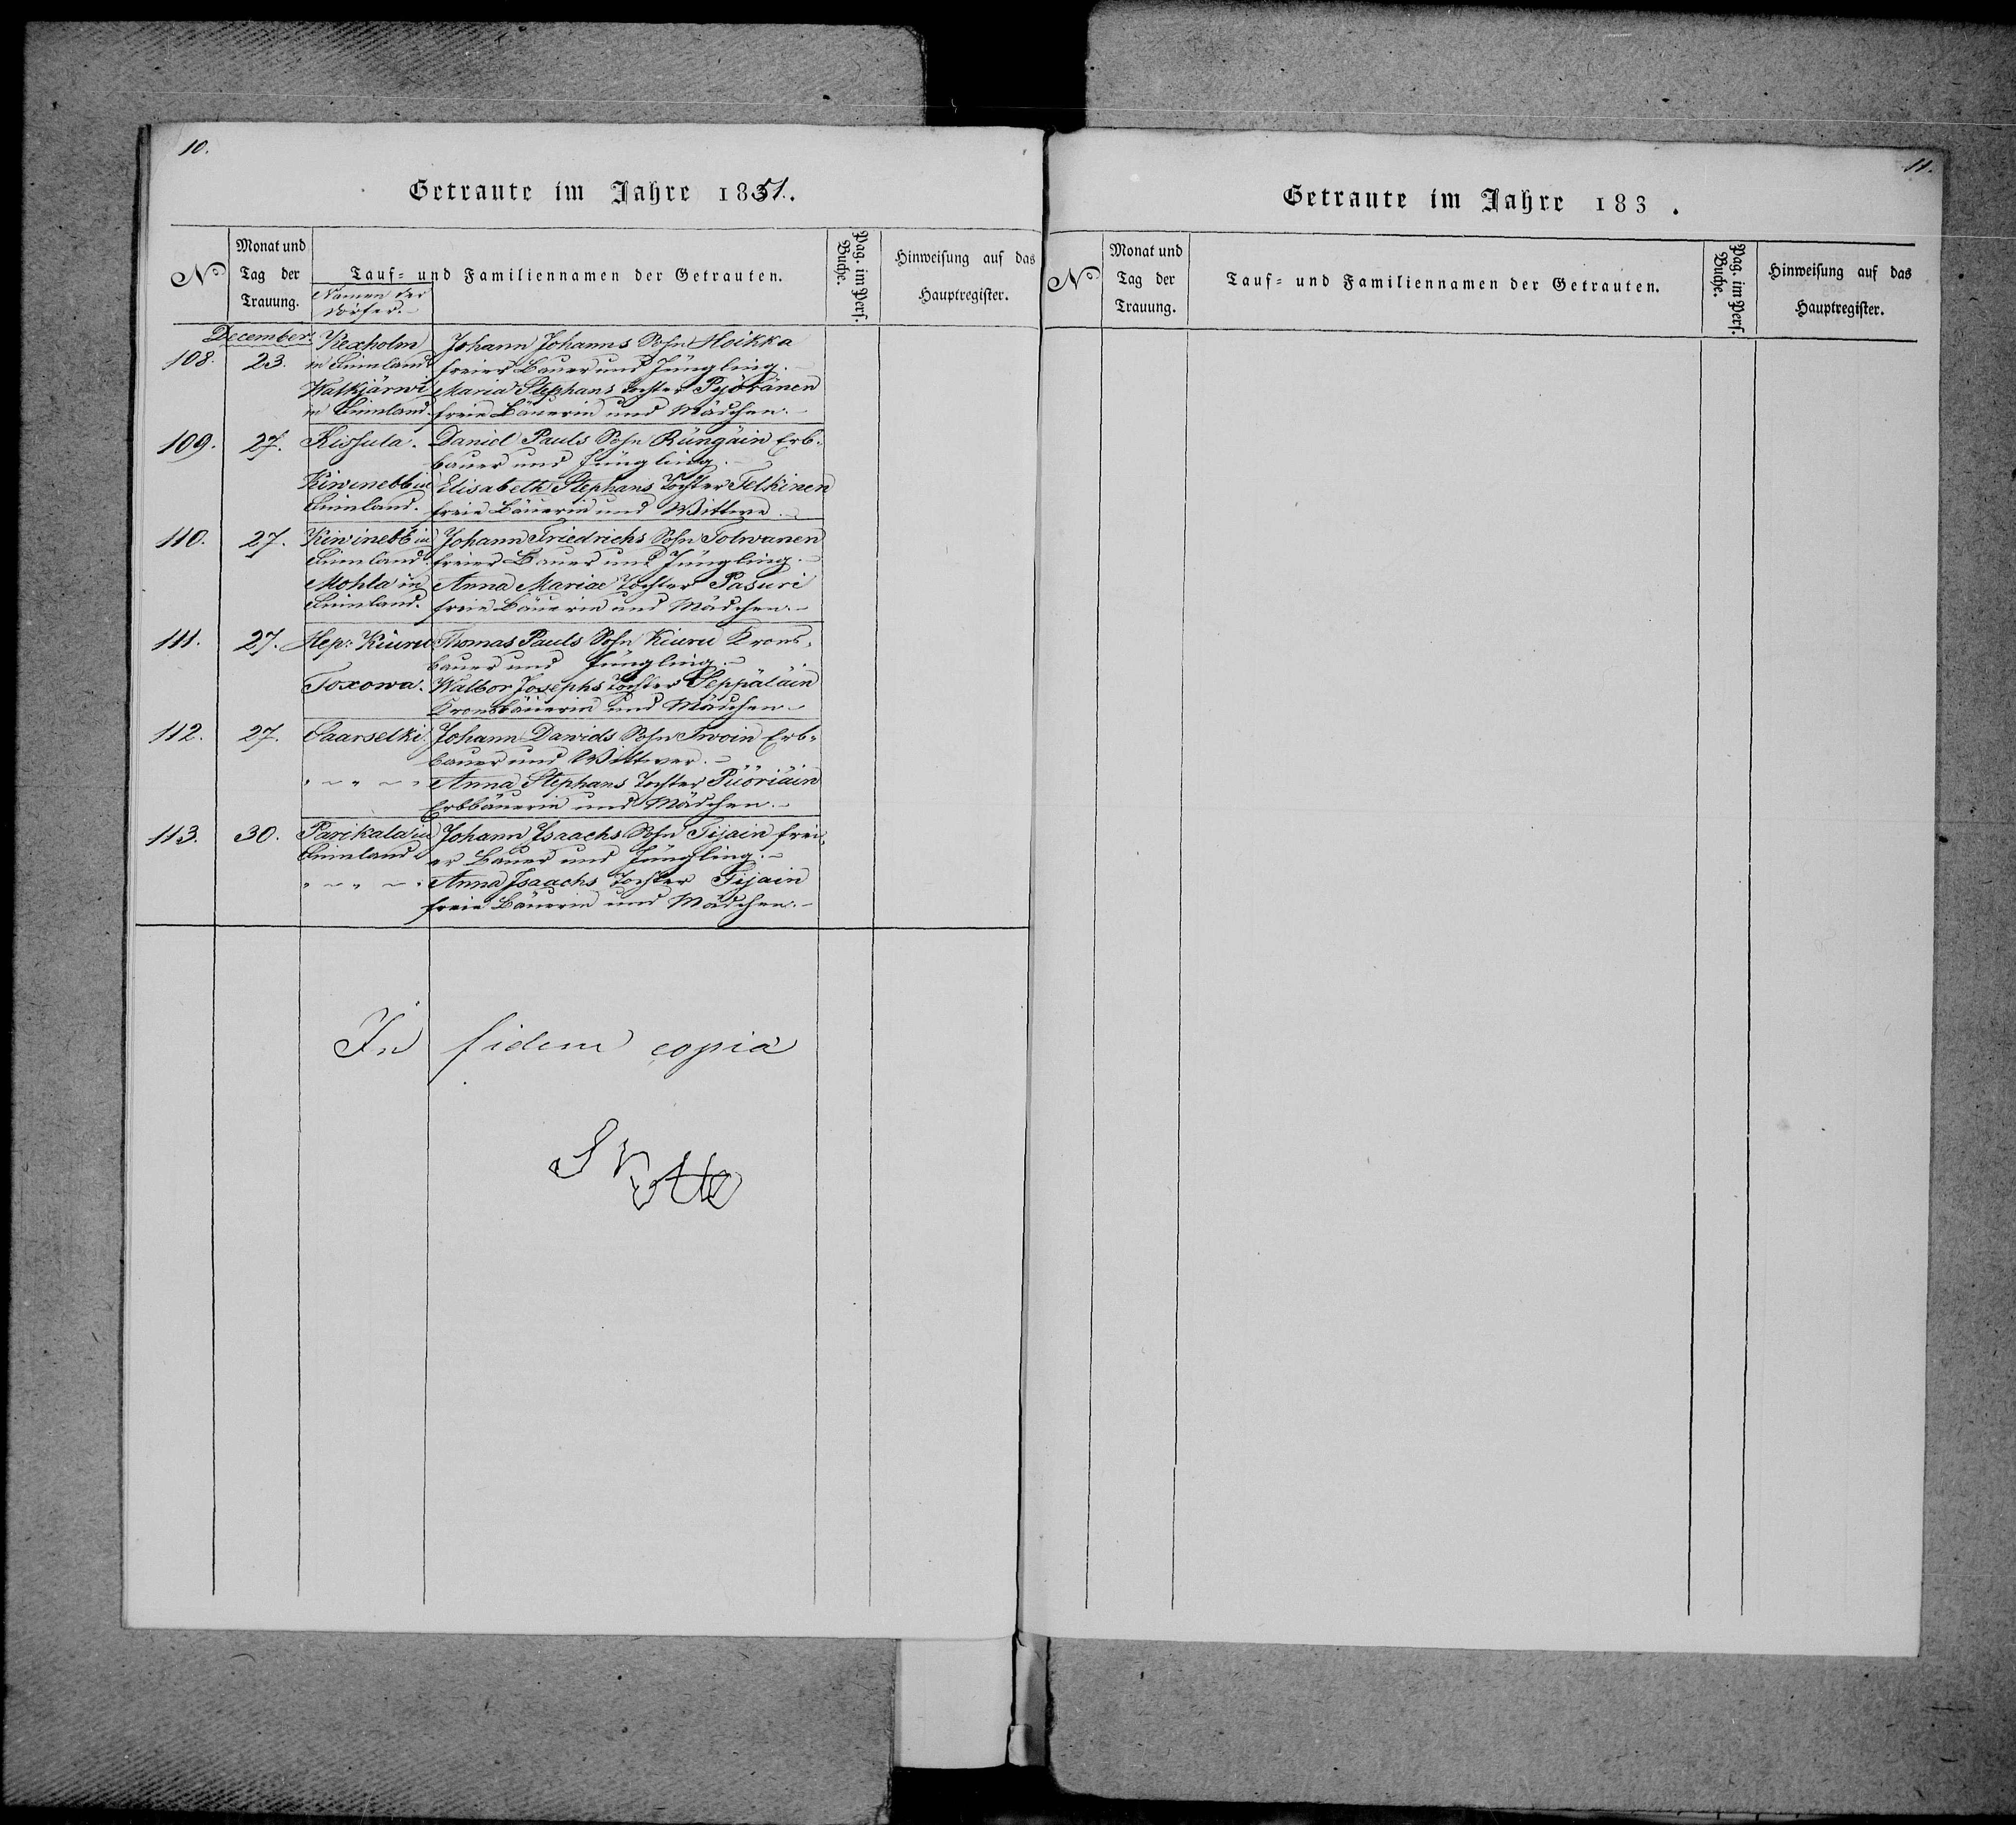 10.
Getraute im Jahre 1851.
No
Monat und
Tag der
Trauung.
Tauf- und Familiennamen der Getrauten.
Namen der
Dörfer.
Pag. im Pers.
Buche.
Hinweisung auf das
Hauptregister.
December.
108. 23. Kexholm Johann Johanns Sohn Hoikka
in Finnland freier Bauer und Jüngling.
Walkjärwi Maria Stephans Tochter Pyöränen
in Finnland. freie Bäuerin und Mädchen.
109. 27. Kissula. Daniel Pauls Sohn Rüngäin Erb-
bauer und Jüngling.
Kiwinebb in Elisabeth Stephans Tochter Telkinen
Finnland. freie Bäuerin und Wittwe.
110. 27. Kiwinebb in Johann Friedrichs Sohn Tolwanen
Finnland. freier Bauer und Jüngling.
Mohla in Anna Mariae Tochter Pasuri
Finnland. freie Bäuerin und Mädchen.
111. 27. Hep: Kiuru Thomas Pauls Sohn Kiuru Krons-
bauer und Jüngling.
Toxowa. Walbor Josephs Tochter Seppäläin
Kronsbäuerin und Mädchen.
112. 27. Saarselki. Johann Dawids Sohn Iwoin Erb-
bauer und Wittwer.
" ~ " ~ " Anna Stephans Tochter Püöriäin
Erbbäuerin und Mädchen.
113. 30. Parikala in Johann Isaachs Sohn Tijain frei-
Finnland. er Bauer und Jüngling.
" ~ " ~ " Anna Isaachs Tochter Tijain
freie Bäuerin und Mädchen.
In fidem copia
11.
Getraute im Jahre 183 .
No
Monat und
Tag der
Trauung.
Tauf- und Familiennamen der Getrauten.
Pag. im Pers.
Buche.
Hinweisung auf das
Hauptregister.